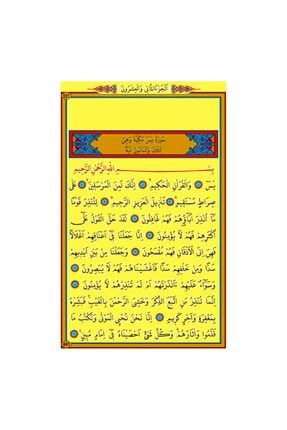 اَلْجُزْءُ الثَّانِي وَالْعِشْرُونَ
سُورَةُ يٰسٓ مَكِّيَّةٌ وَهِيَ
ثَلَاثٌ وَثَمَانُونَ اٰيَةً
بِسْمِ اللهِ الرَّحْمٰنِ الرَّحِيمِ
يٰسٓ وَالْقُرْاٰنِ الْحَكِيمِ اِنَّكَ لَمِنَ الْمُرْسَلِينَ عَلٰى
صِرَاطٍ مُسْتَقِيمٍ تَنْزِيلَ الْعَزِيزِ الرَّحِيمِ لِتُنْذِرَ قَوْمًا
مَا اُنْذِرَ اٰبَاؤُهُمْ فَهُمْ غَافِلُونَ لَقَدْ حَقَّ الْقَوْلُ عَلٰى
اَكْثَرِهِمْ فَهُمْ لَا يُؤْمِنُونَ اِنَّا جَعَلْنَا فِي اَعْنَاقِهِمْ اَغْلَالًا
فَهِيَ اِلَى الْاَذْقَانِ فَهُمْ مُقْمَحُونَ وَجَعَلْنَا مِنْ بَيْنِ اَيْدِيهِمْ
سَدًّا وَمِنْ خَلْفِهِمْ سَدًّا فَاَغْشَيْنَاهُمْ فَهُمْ لَا يُبْصِرُونَ
وَسَوَاءٌ عَلَيْهِمْ ءَاَنْذَرْتَهُمْ اَمْ لَمْ تُنْذِرْهُمْ لَا يُؤْمِنُونَ
اِنَّمَا تُنْذِرُ مَنِ اتَّبَعَ الذِّكْرَ وَخَشِيَ الرَّحْمٰنَ بِالْغَيْبِ فَبَشِّرْهُ
بِمَغْفِرَةٍ وَاَجْرٍ كَرِيمٍ اِنَّا نَحْنُ نُحْيِ الْمَوْتٰى وَنَكْتُبُ مَا
قَدَّمُوا وَاٰثَارَهُمْ وَكُلَّ شَيْءٍ اَحْصَيْنَاهُ فِي اِمَامٍ مُبِينٍ